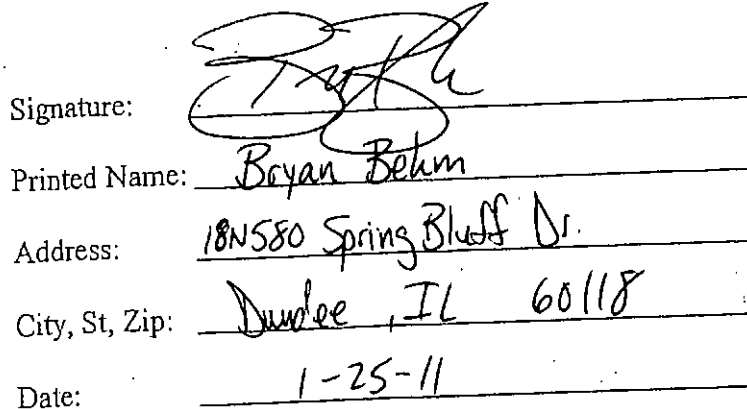 Signature:
Printed Name: Bryan Behm
Address: 18N580 Spring Bluff Dr.
City, St, Zip: Dundee, IL 60118
Date: 1-25-11